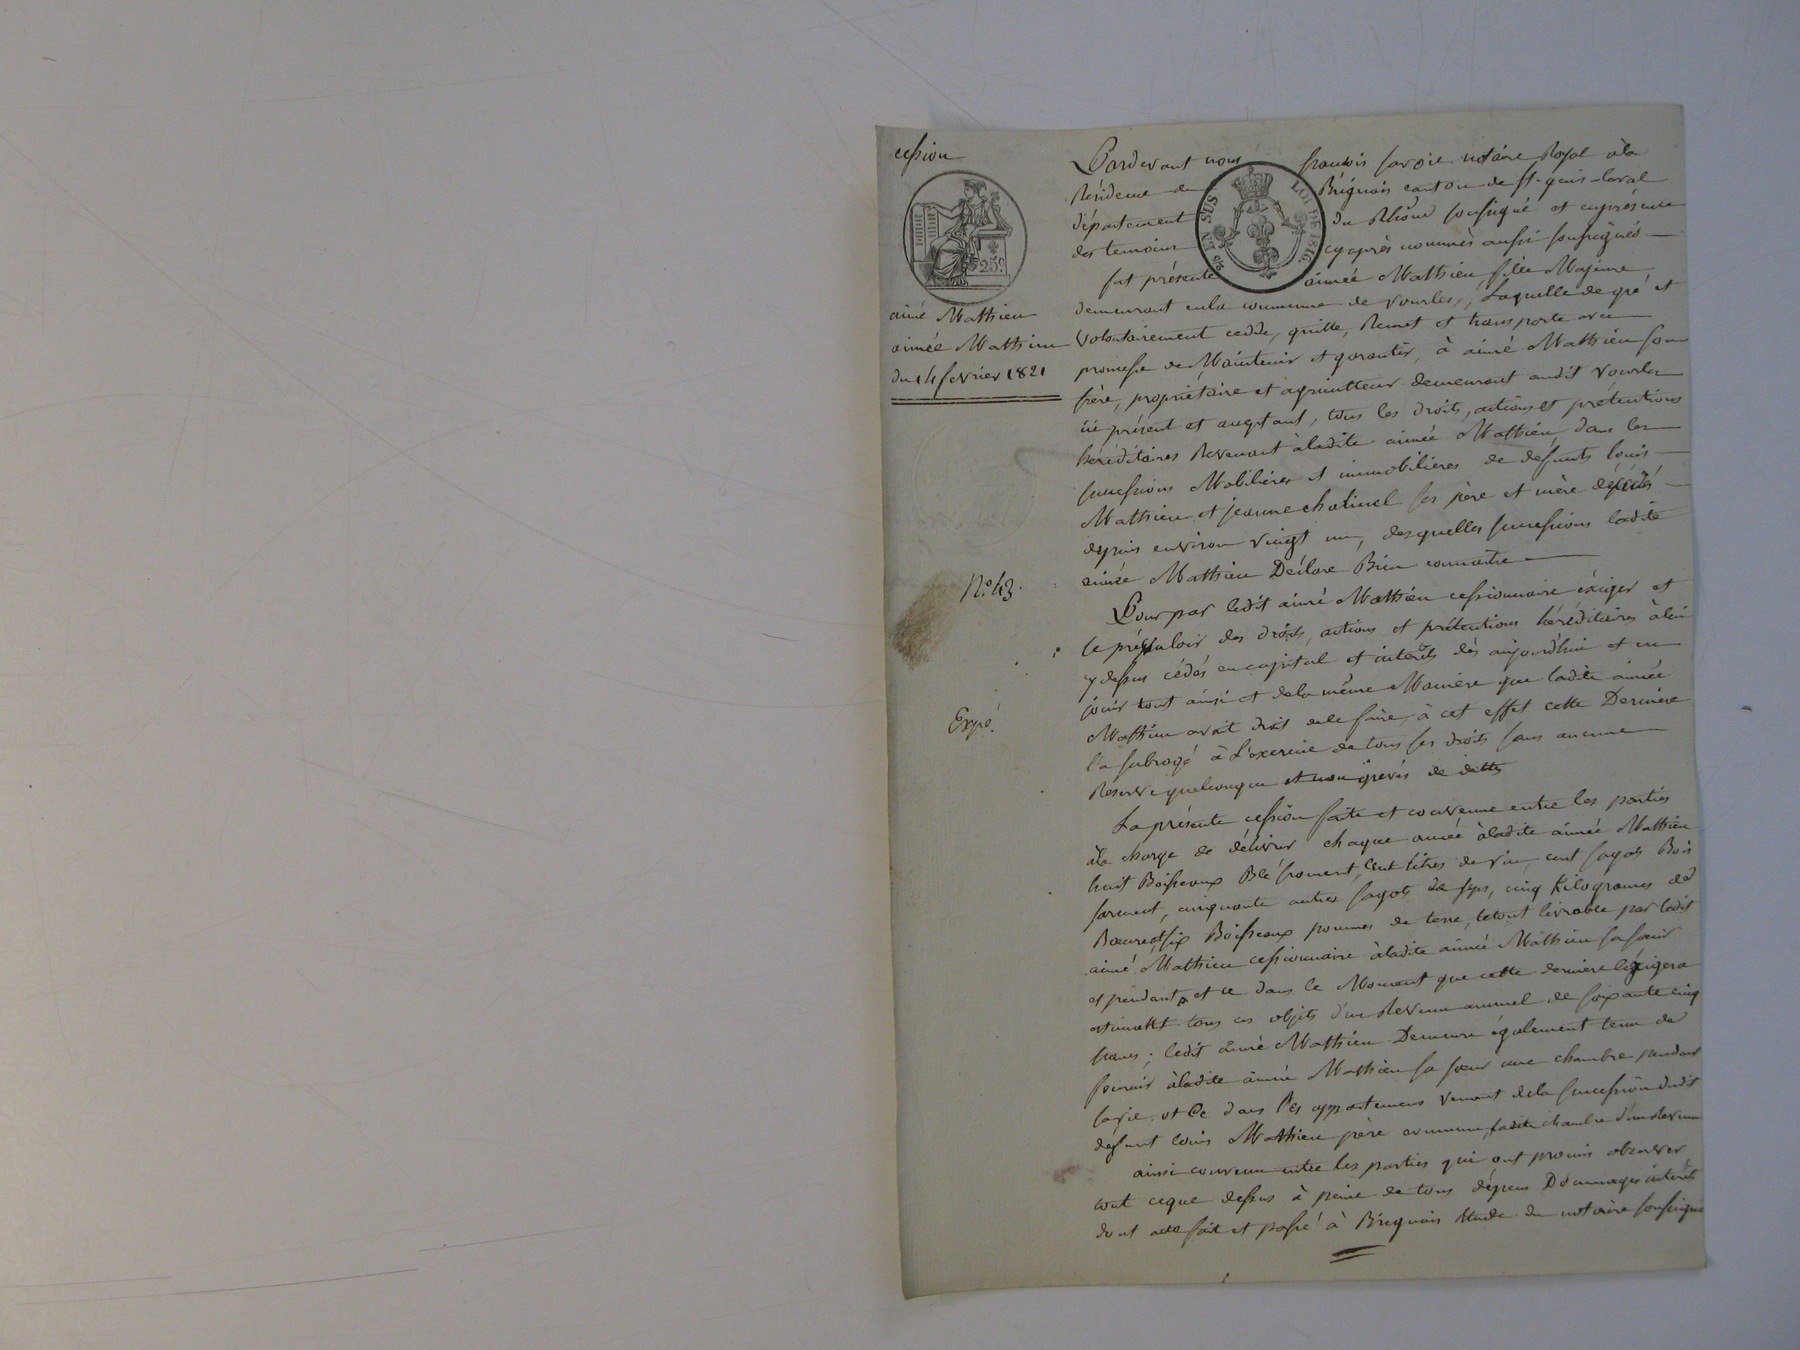 cession
25c.
aimé Mathieu
aimée Mathieu
du 14 fevrier 1821
N.o 43.
Expé.
25 EN SUS LOI DE 1816.
Pardevant nous françois savoie notaire Royal àla
Résidence de Brignais canton de st. genis-laval
département du Rhône soussigné et enprésence
des temoins cyaprès nommés aussi soussignés
fut présente aimée Mathieu fille Majeure,
demeurant enla commune de vourles, Laquelle de gré et
volontairement cedde, quitte, Remet et transporte avec
promesse de Maintenir et garantir, à aimé Mathieu son
frère, propriétaire et agriculteur demeurant audit vourles
ici présent et aceptant, tous les droits, actions et prétentions
héréditaires Revenant àladite aimée Mathieu dans les
successions Mobilières et immobilières de defunts louis
Mathieu et jeanne chatinel ses père et mère décédés
depuis environ vingt un, desquelles successions ladite
aimée Mathieu Déclare Bien connaitre
Pour par ledit aimé Mathieu cessionnaire éxiger et
se prévaloir des droits, actions et prétentions héréditaires àlui
cy dessus cédés en capital et intérêts dès aujourd'hui et en
jouir tout ainsi et dela même Manière que ladite aimée
Mathieu avoit droit dele faire, à cet effet cette Dernière
l'a subrogé à L'exercice de tous ses droits sans aucune
Réserve quelconque et non grevés de dettes
La présente cession faite et convenue entre les parties
àla charge de délivrer chaque année àladite aimée Mathieu
huit Boisseaux Blé froment, cent litres de vin, cent fagots Bois
sarment, cinquante autres fagots de cinq Kilogrames de
Beurre et six Boisseaux pommes de terre, letout livrable par ledit
aimé Mathieu cessionnaire àladite aimée Mathieu sa sœur
et pendant et ce dans le Moment que cette dernière l'éxigera
estimatt tous ces objets d'un Revenu annuel de soixante cinq
francs; ledit aimé Mathieu Demeure également tenu de
fournir àladite aimée Mathieu sa sœur une chambre pendant
savie, et Ce dans les appartemens venant dela succession dudit
defunt louis Mathieu père commun, ladite chambre d'un Revenu
ainsi convenu entre les parties qui ont promis observer
tout ceque dessus à peine de tous dépens Dommages intérêts
dont acte fait et passé à Brignais étude du notaire soussigné